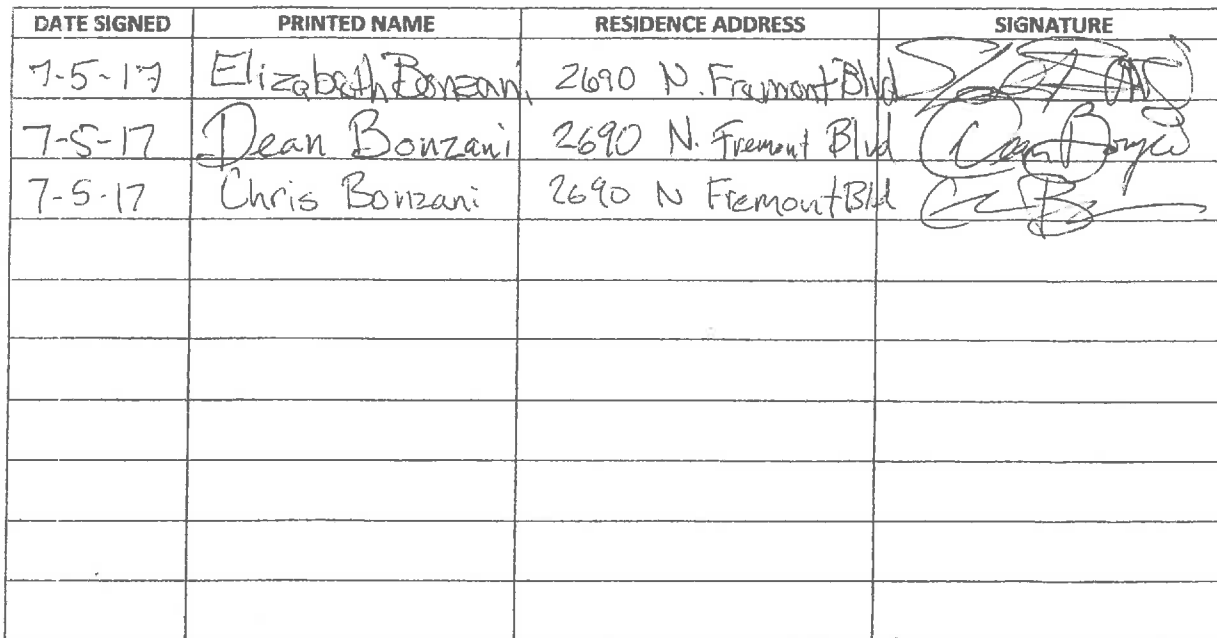 DATE SIGNED PRINTED NAME RESIDENCE ADDRESS SIGNATURE
7-5-17 Elizabeth Bonzani 2690 N. Fremont Blvd
7-5-17 Dean Bonzani 2690 N. Fremont Blvd
7-5-17 Chris Bonzani 2690 N Fremont Bld